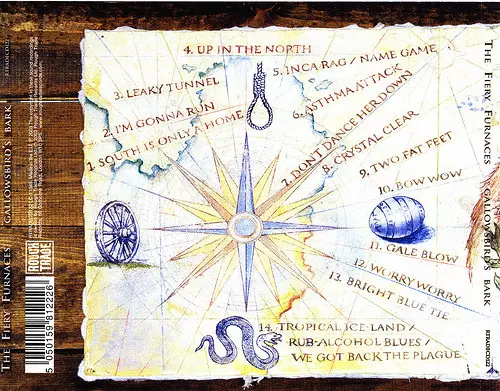 4. UP IN THE NORTH
5. INCA RAG / NAME GAME
3. LEAKY TUNNEL
6. ASTHMA ATTACK
2. I'M GONNA RUN
7. DON'T DANCE HER DOWN
1. SOUTH IS ONLY A HOME
8. CRYSTAL CLEAR
9. TWO FAT FEET
10. BOW WOW
11. GALE BLOW
12. WORRY WORRY
13. BRIGHT BLUE TIE
14. TROPICAL ICE-LAND /
RUB-ALCOHOL BLUES /
WE GOT BACK THE PLAGUE
THE FIERY FURNACES GALLOWSBIRD'S BARK
RTRADNCD102
ROUGH
TRADE
5 050159 812226
THE FIERY FURNACES GALLOWSBIRD'S BARK